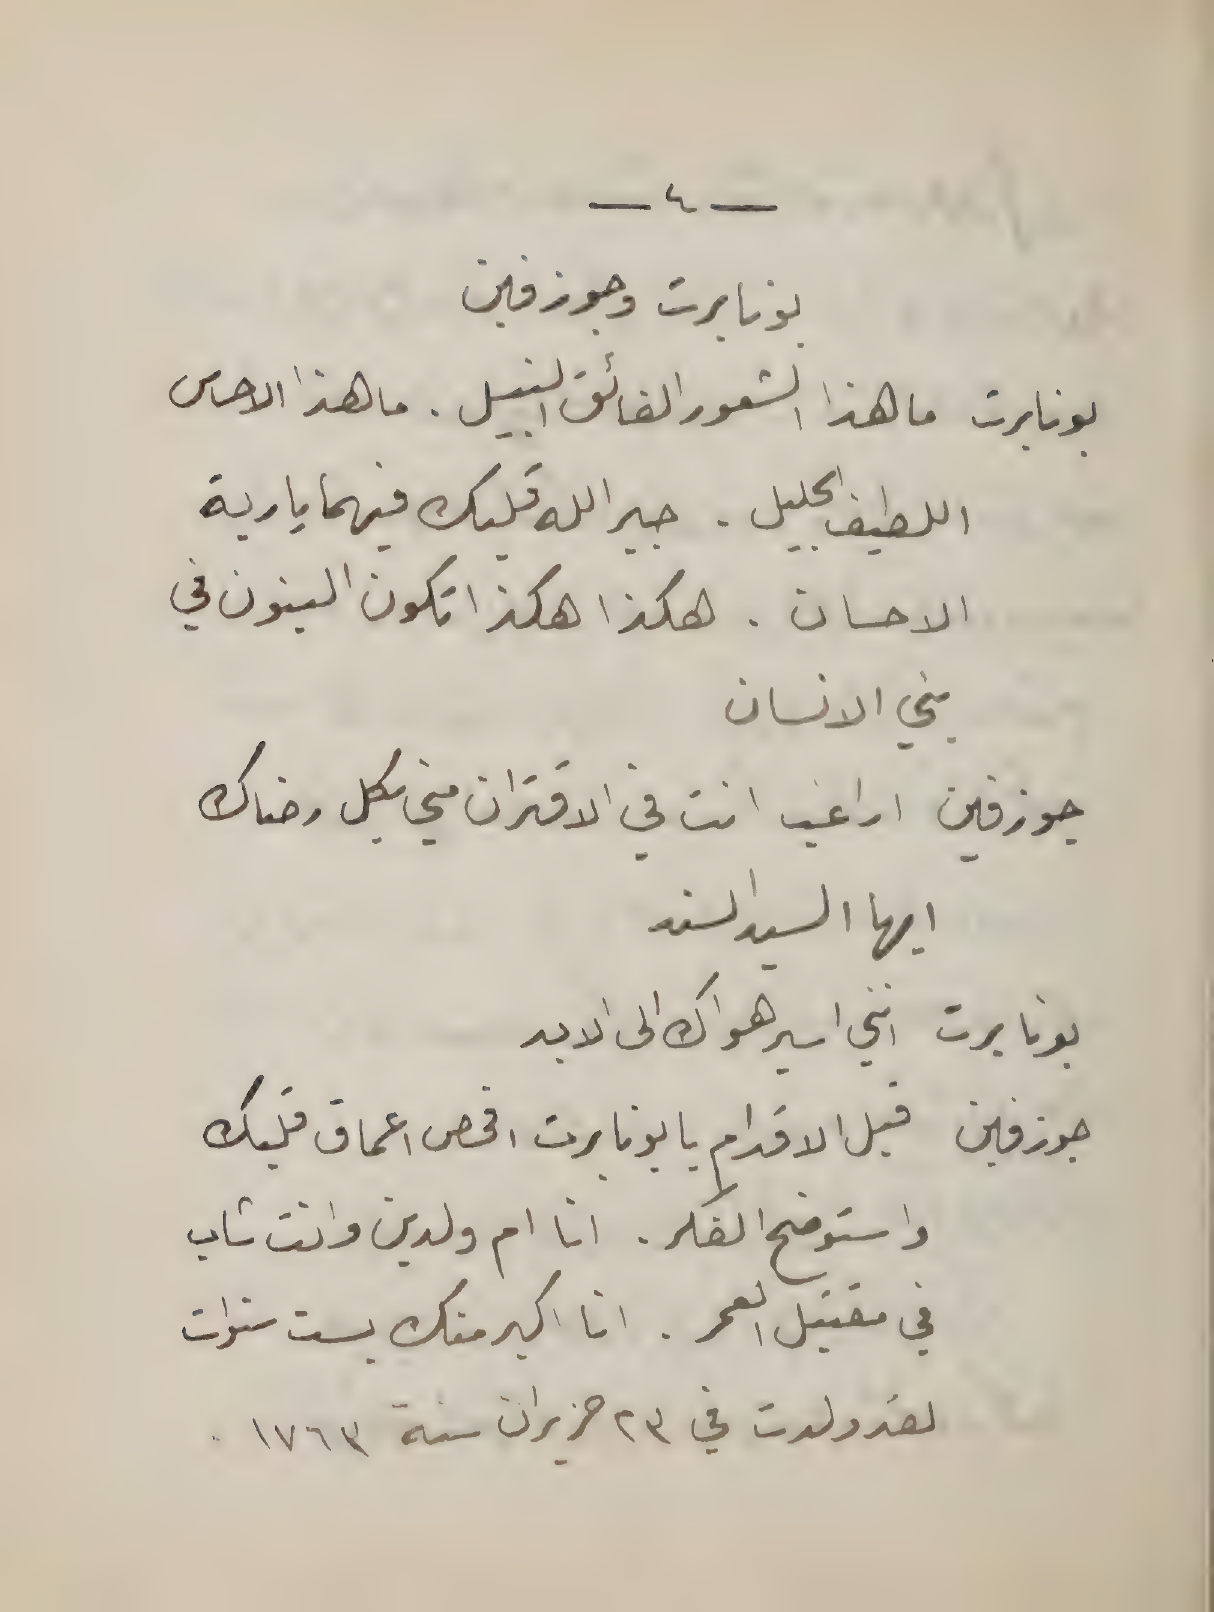 — ٤ —
بونابرت وجوزفين
بونابرت ما هذا الشعور الفائق النبيل . ما هذا الاحساس
اللطيف الجليل . جبر الله قلبك فيهما يا ربة
الاحسان . هكذا هكذا تكون البنون في
بني الانسان
جوزفين اراغب انت في الاقتران مني بكل رضاك
ايها السيد السند
بونابرت انني اسير هواك الى الابد
جوزفين قبل الاقدام يا بونابرت افحص اعماق قلبك
واستوضح الفكر . انا ام ولدين وانت شاب
في مقتبل العمر . انا اكبر منك بست سنوات
لقد ولدت في ٢٣ حزيران سنة ١٧٦٣ .